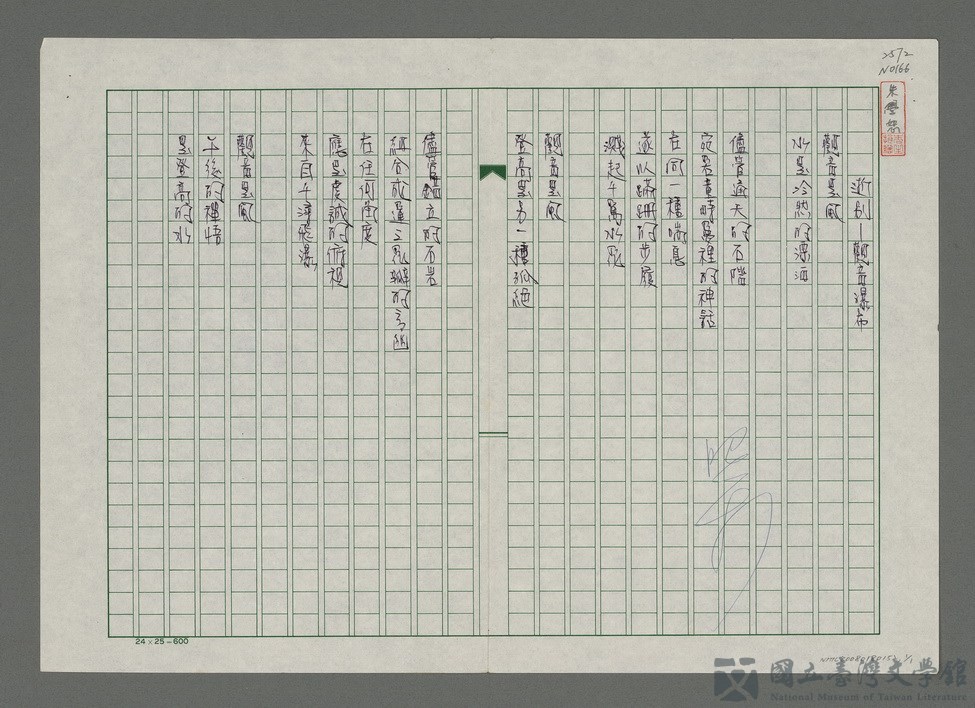 2572
N0166
朱學恕
逝別—觀音瀑布
觀音是風
水是冷然的瀟洒
儘管通天的石階
宛若黃時暮裡的神話
在同一種喘息
遂以蹣跚的步履
濺起千萬水花
觀音是風
登高是另一種孤絕
儘管錯立的石岩
組合成違三死角的
在任何角度
應是虔誠的俯視
來自千濤飛瀑
觀音是風
午後的禪悟
是登高的水
24×25=600
國立臺灣文學館
National Museum of Taiwan Literature